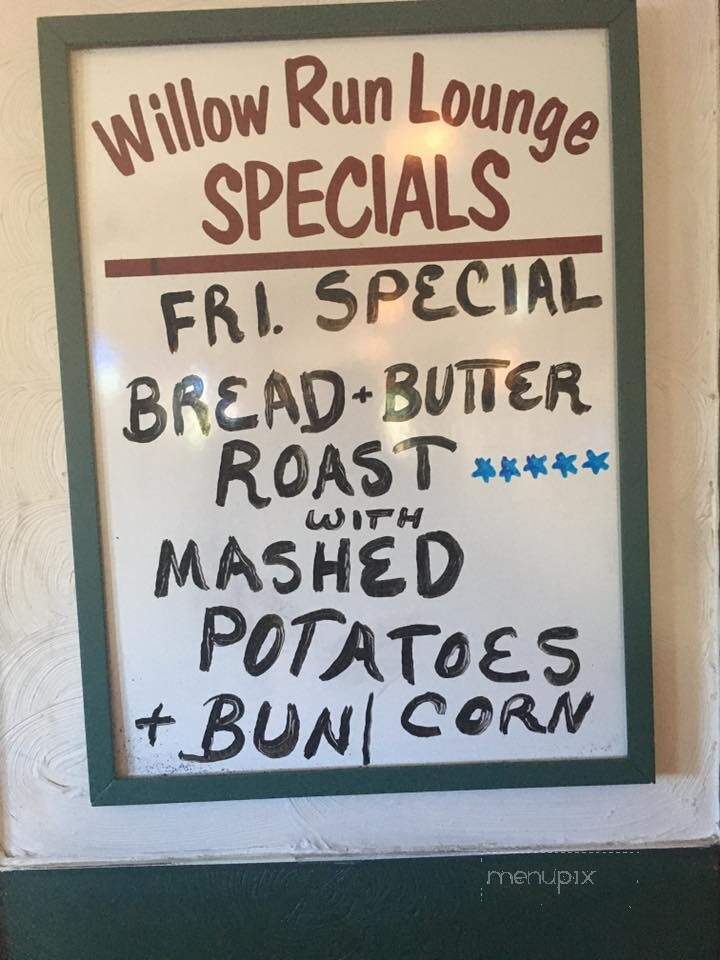 Willow Run Lounge
SPECIALS
FRI. SPECIAL
BREAD + BUTTER
ROAST
WITH
MASHED
POTATOES
+ BUN| CORN
menupix